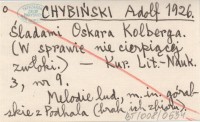 CHYBIŃSKI Adolf 1926.
Śladami Oskara Kolberga.
(W sprawie nie cierpiącej
zwłoki.) — Kur. Lit.-Nauk.
3, nr 9.
Melodie lud., m.in. góral-
skie z Podhala (brak ich zbioru).